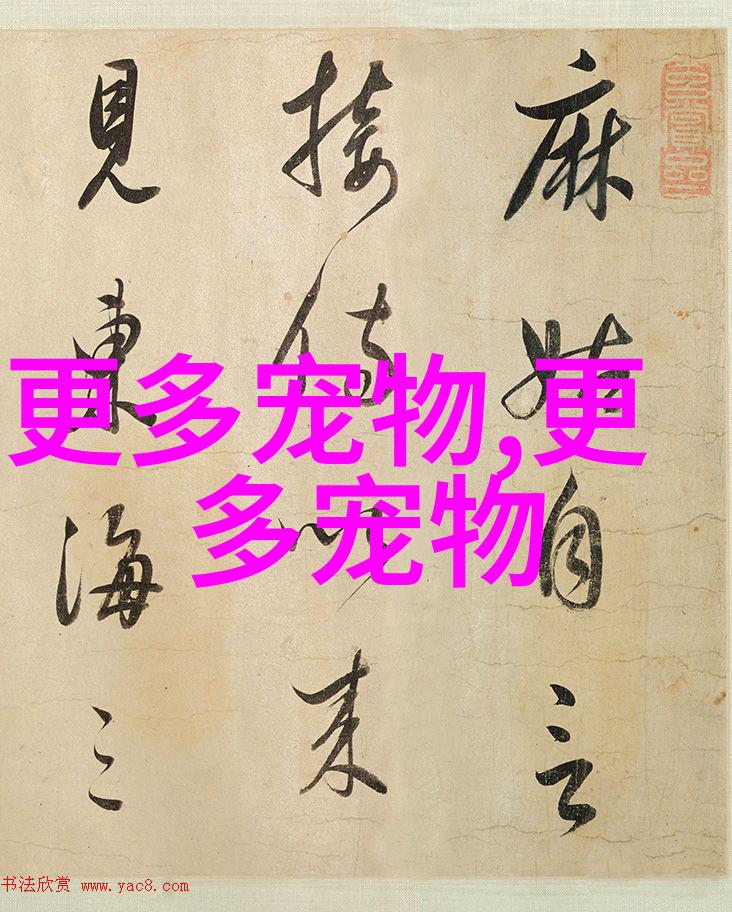 麻姑自言
接侍以来
見東海三
更多宠物,更
多宠物
书法欣赏 www.yac8.com